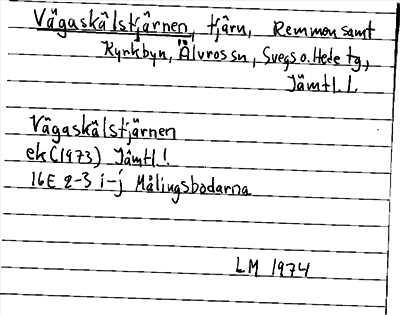 Vägaskälstjärnen, tjärn, Remmen samt
Kyrkbyn, Älvros sn, Svegs o. Hede tg,
Jämtl. l.
Vägaskälstjärnen
ek (1973) Jämtl. l.
16E 2-3 i-j Målingsbodarna
LM 1974